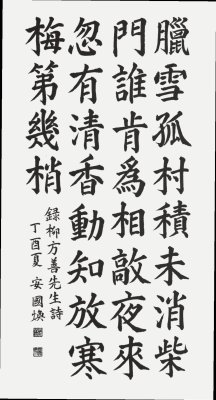 臘雪孤村積未消柴
門誰肯爲相敲夜來
忽有清香動知放寒
梅第幾梢
錄柳方善先生詩
丁酉夏 安國煥